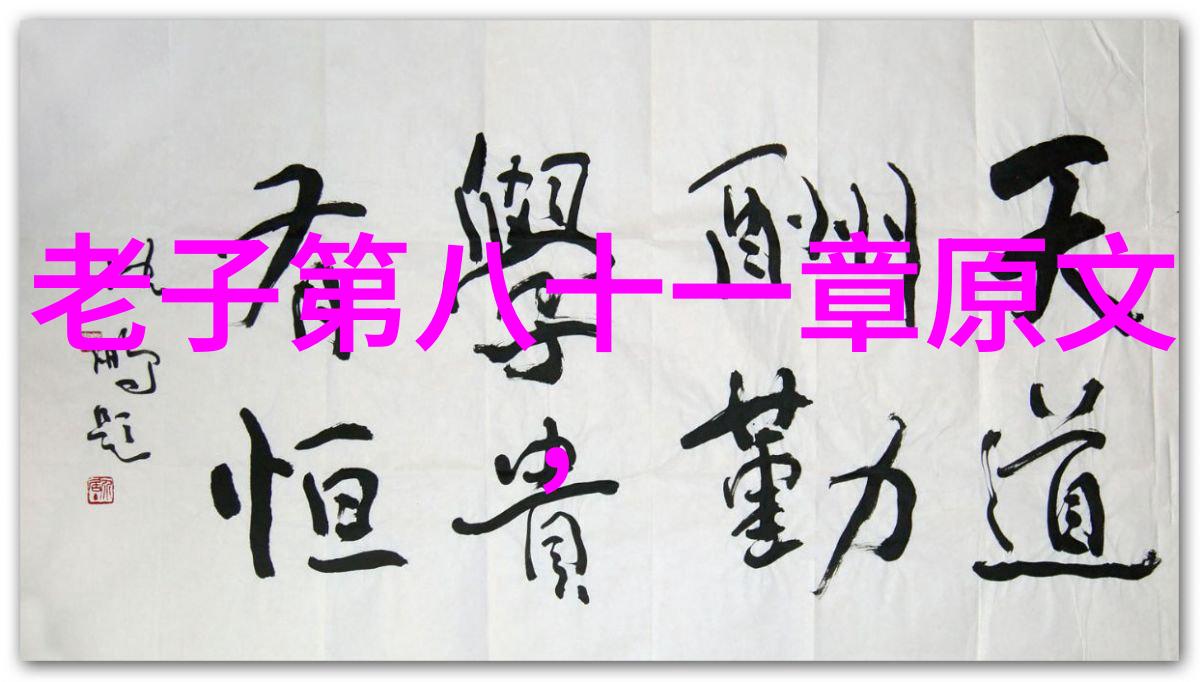 老子第八十一章原文
,
天道
酬勤
學貴
有恒
鹏题